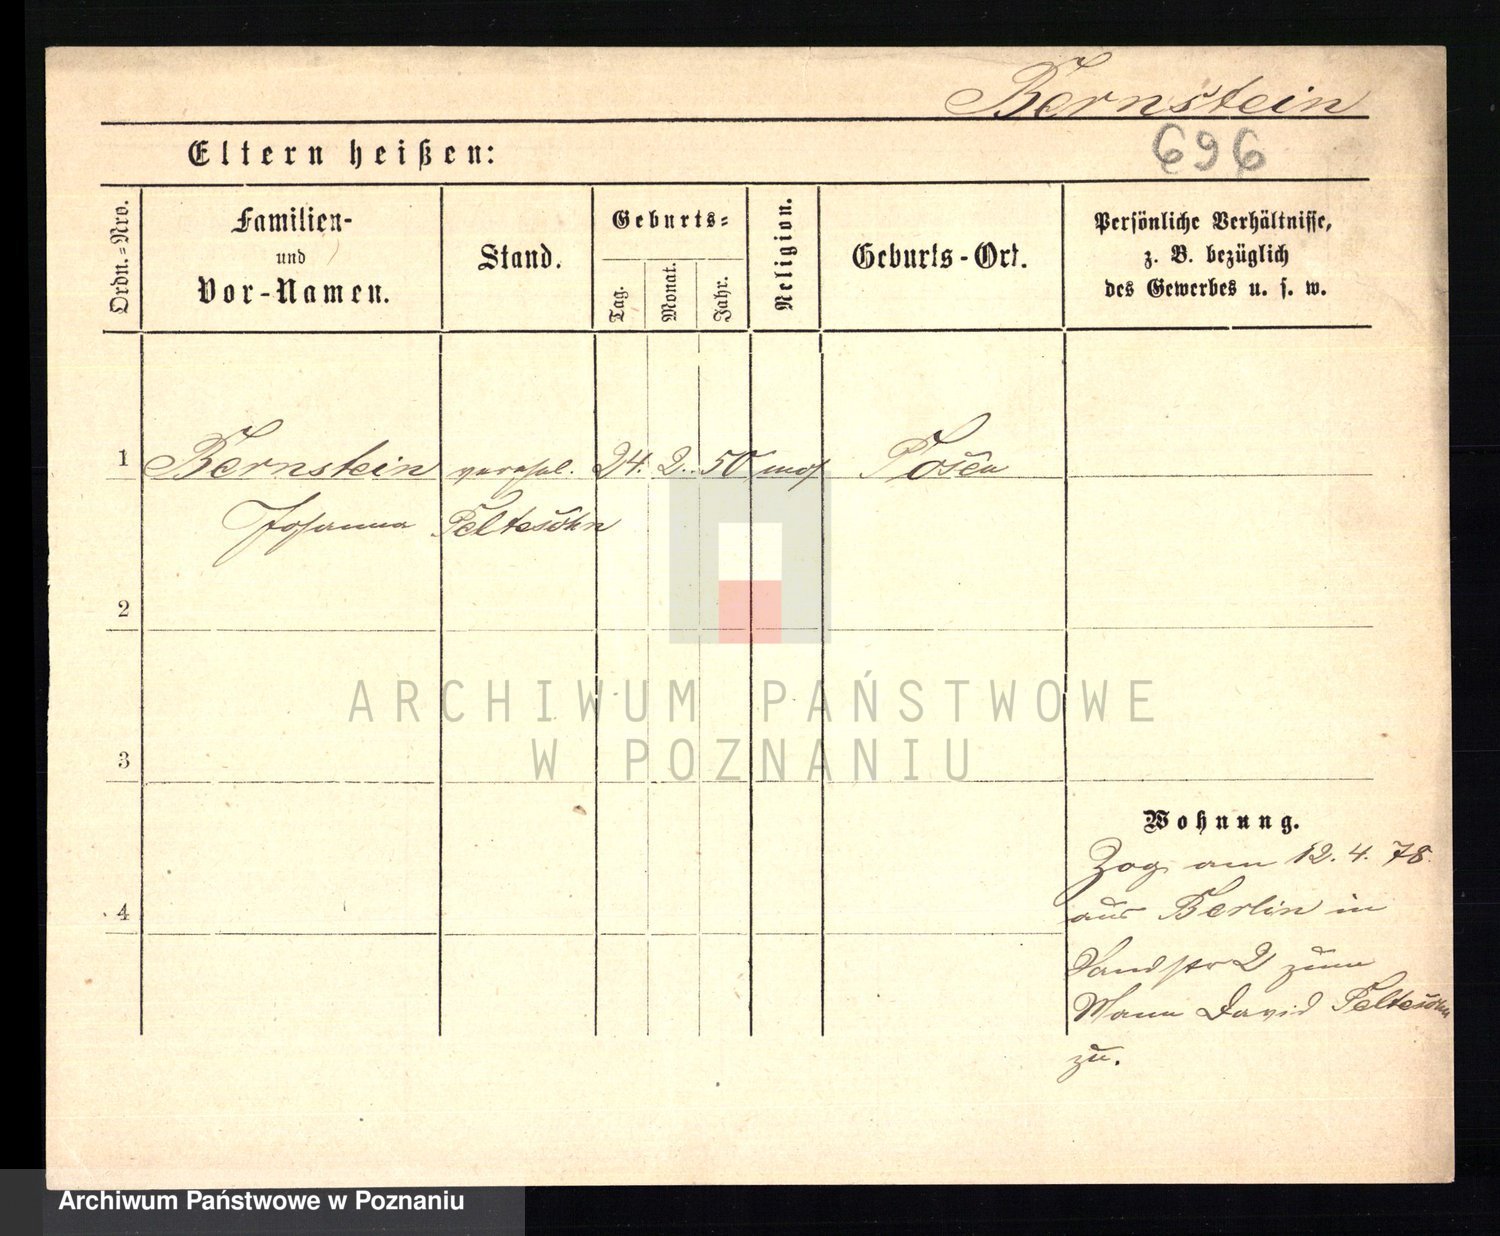 Bernstein
696
Eltern heißen:
Ordn.-Nro.
Familien-
und
Vor-Namen.
Stand.
Geburts-
Tag.
Monat.
Jahr.
Religion.
Geburts-Ort.
Persönliche Verhältnisse,
z. B. bezüglich
des Gewerbes u. s. w.
1 Bernstein verehel. 24. 2. 50 mos Posen
Johanna Peltesohn
2
3
4
Wohnung.
Zog am 12. 4. 78.
aus Berlin in
Sandstr 2 zum
Mann David Peltesohn
zu.
ARCHIWUM PAŃSTWOWE
W POZNANIU
Archiwum Państwowe w Poznaniu